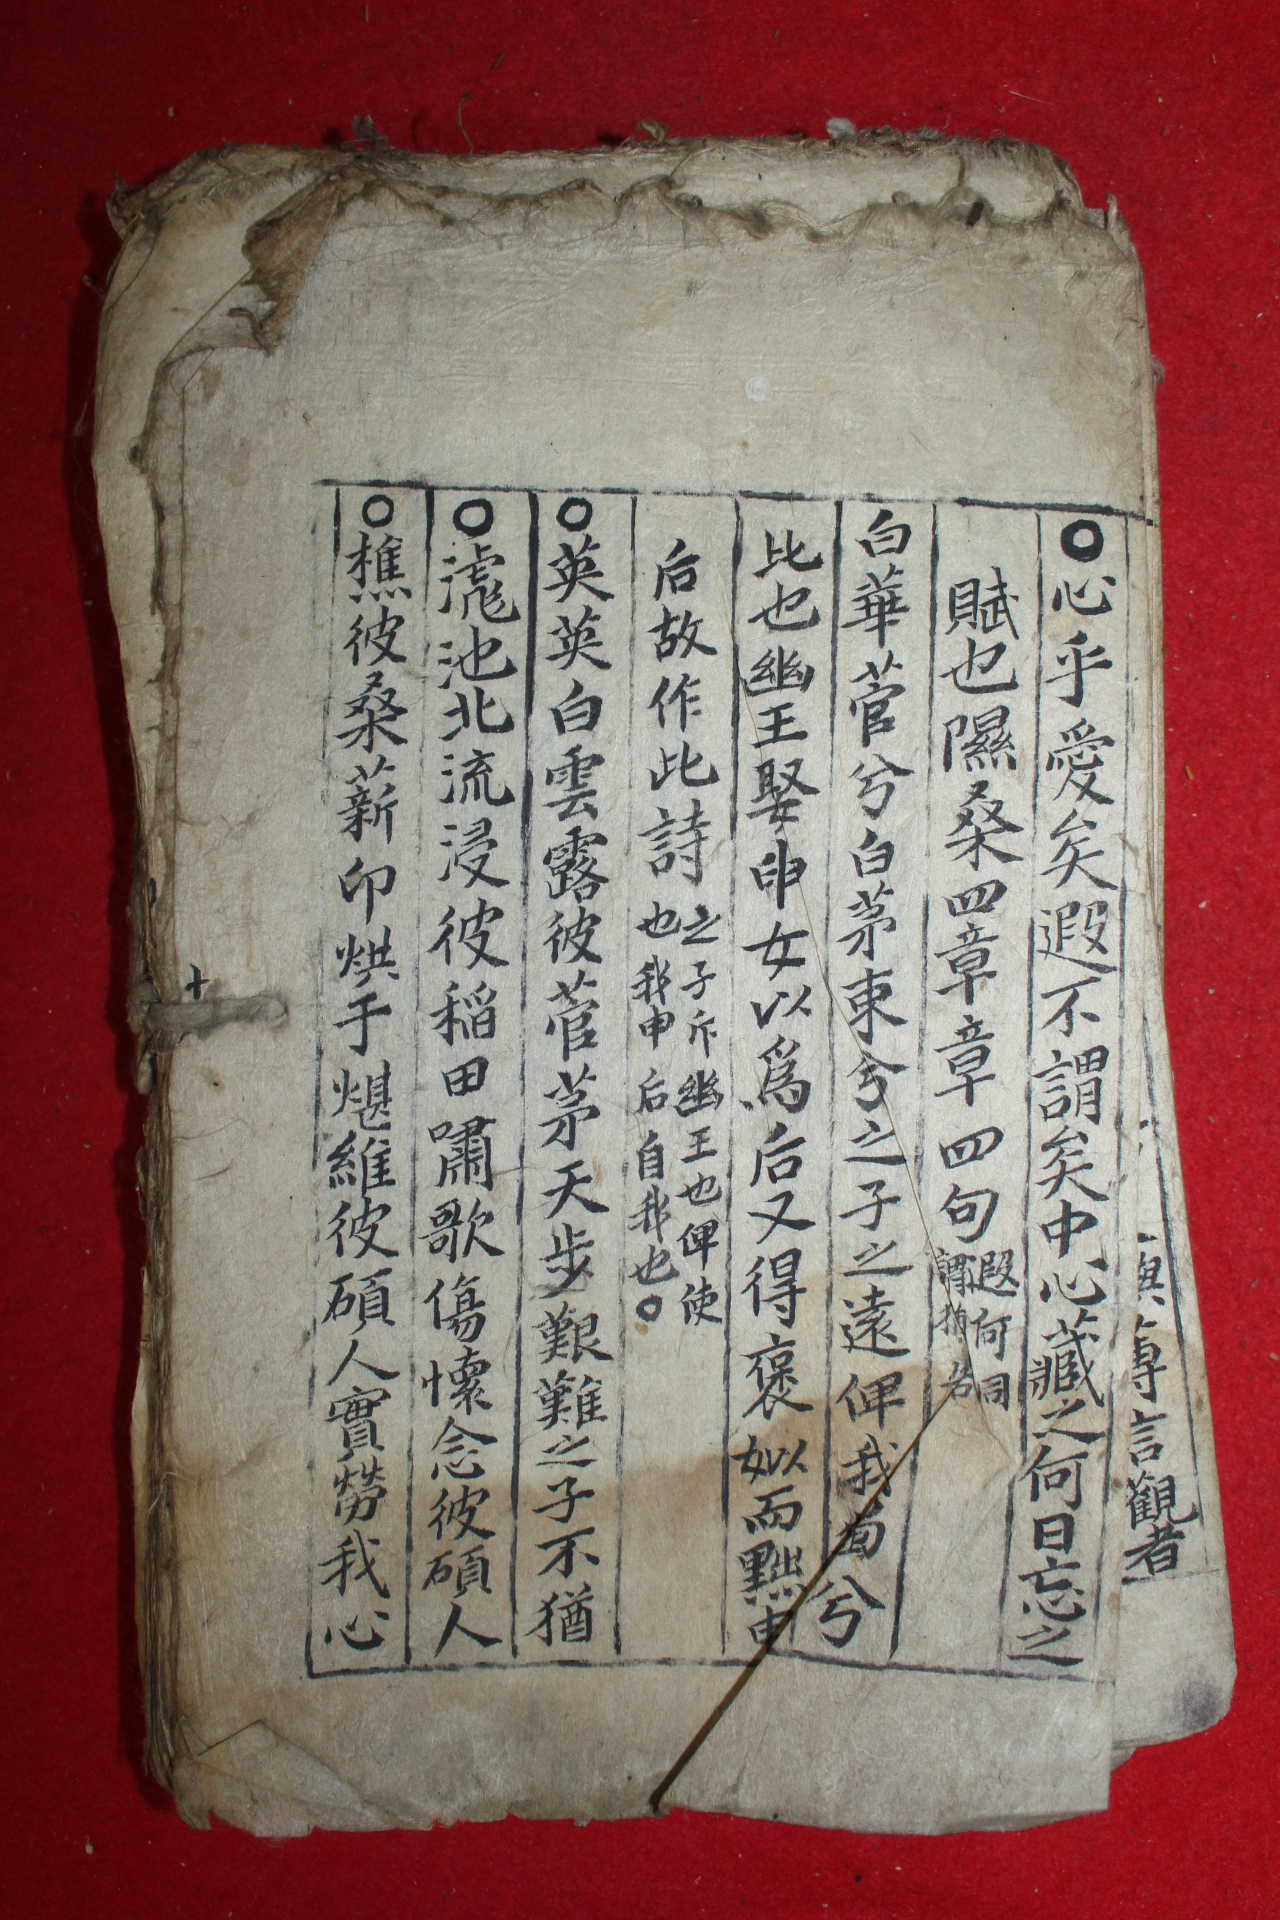 ○心乎愛矣遐不謂矣中心藏之何日忘之
賦也隰桑四章章四句遐何同謂猶告
白華菅兮白茅束兮之子之遠俾我獨兮
比也幽王娶申女以爲后又得褒姒而黜申
后故作此詩之子斥幽王也俾使也我申后自我也○
○英英白雲露彼菅茅天步艱難之子不猶
○滮池北流浸彼稻田嘯歌傷懷念彼碩人
○樵彼桑薪卬烘于煁維彼碩人實勞我心
言觀者
十